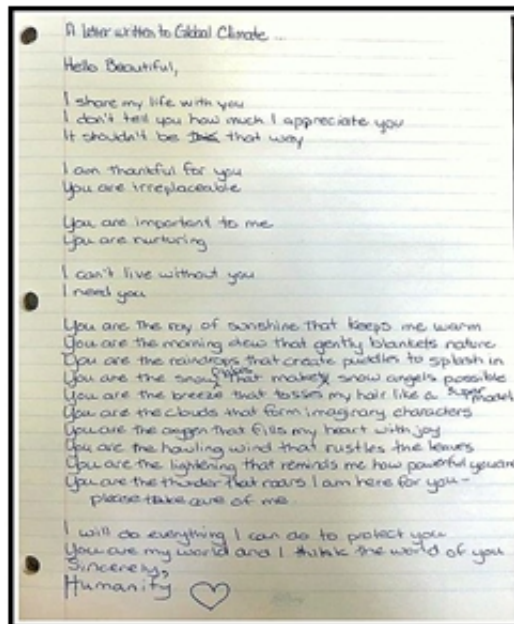 A letter written to Global Climate...
Hello Beautiful,
I share my life with you
I don't tell you how much I appreciate you
It shouldn't be that way
I am thankful for you
You are irreplaceable
You are important to me
You are nurturing
I can't live without you
I need you
You are the ray of sunshine that keeps me warm
You are the morning dew that gently blankets nature
You are the raindrops that create puddles to splash in
You are the snow flakes that make snow angels possible
You are the breeze that tosses my hair like a super model
You are the clouds that form imaginary characters
You are the oxygen that fills my heart with joy
You are the howling wind that rustles the leaves
You are the lightening that reminds me how powerful you are
You are the thunder that roars I am here for you -
please take care of me.
I will do everything I can do to protect you
You are my world and I think the world of you
Sincerely,
Humanity